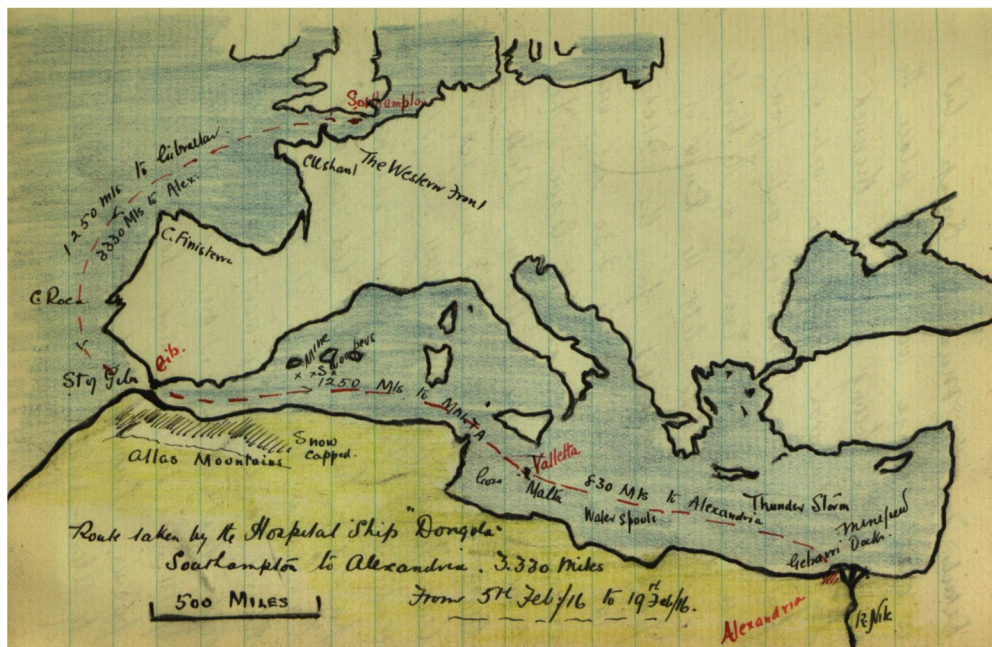 Southampton
1250 Mls to Gibraltar.
3330 Mls to Alex.
Ushant
The Western Front
C. Finisterre
C. Roca
St of Gibr
Gib.
Mine
Sweepers
1250 Mls to MALTA
Snow
capped.
Atlas Mountains
Valletta
Gozo
Malta
830 Mls to Alexandria
Water spouts
Thunder Storm
minefield
Gebarri Docks.
Route taken by the Hospital Ship "Dongola"
Southampton to Alexandria. 3.330 Miles
From 5th Feb/16 to 19th Feb/16.
500 MILES
Alexandria
R. Nile